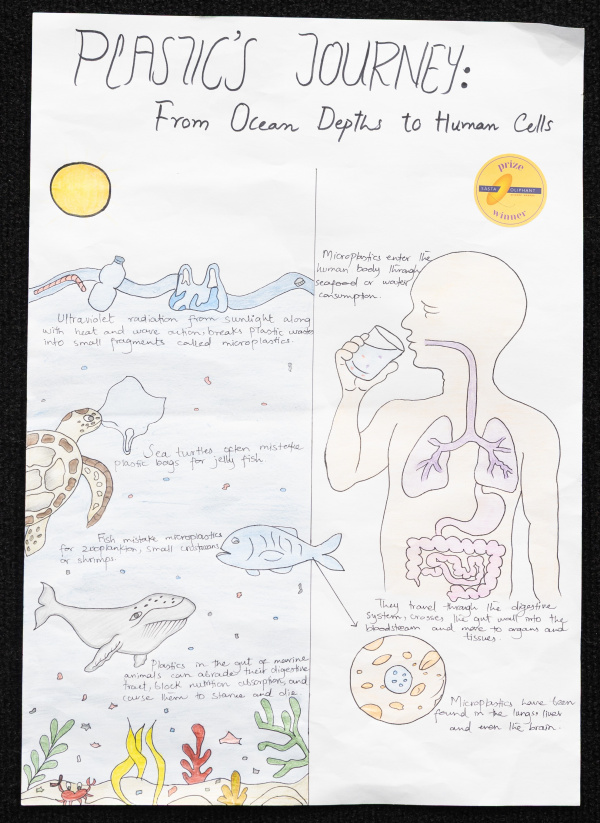 PLASTIC'S JOURNEY:
From Ocean Depths to Human Cells
prize
YASTA OLIPHANT
winner
Ultraviolet radiation from sunlight along
with heat and wave action, breaks plastic waste
into small fragments called microplastics.
Sea turtles often mistake
plastic bags for jelly fish
Fish mistake microplastics
for zooplankton, small crustaceans
or shrimps.
Plastics in the gut of marine
animals can abrade their digestive
tract, block nutrition absorption, and
cause them to starve and die
Microplastics enter the
human body through
seafood or water
consumption.
They travel through the digestive
system, crosses the gut wall into the
bloodstream and move to organs and
tissues
Microplastics have been
found in the lungs, liver
and even the brain.